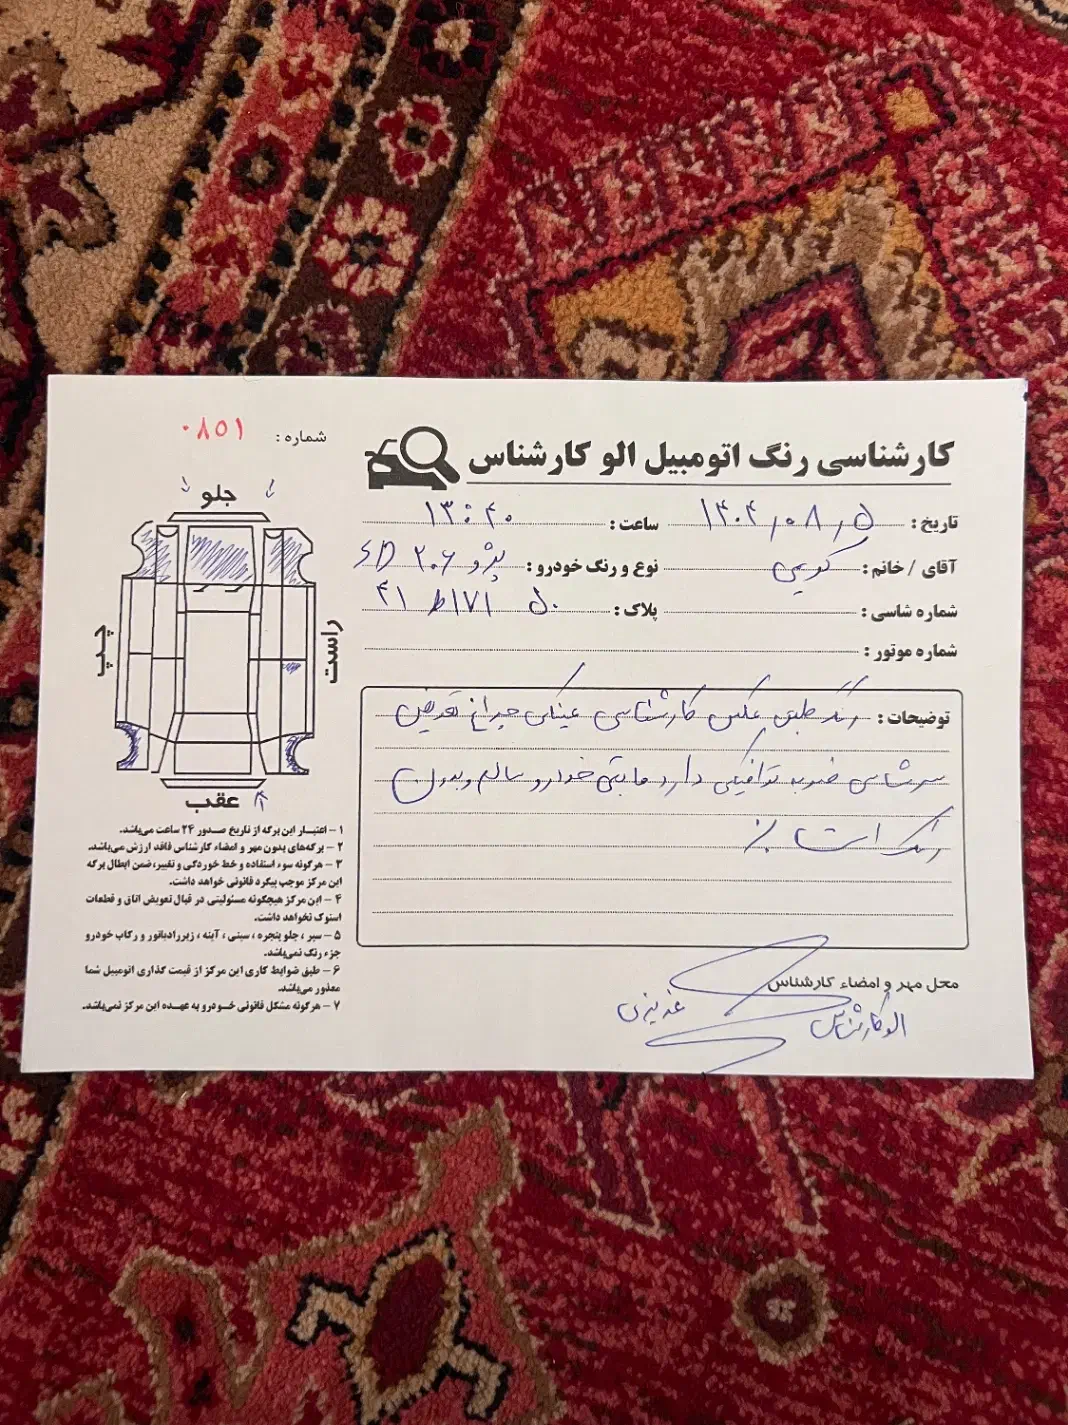 کارشناسی رنگ اتومبیل الو کارشناس
شماره : ۰۸۵۱
تاریخ : ۱۴۰۴/۰۸/۵ ساعت : ۱۳:۴۰
آقای / خانم : کریمی نوع و رنگ خودرو : پژو ۲۰۶ SD
شماره شاسی : پلاک : ۵۰ ۱۷۱ط۴۱
شماره موتور :
توضیحات : رنگ طبق عکس کارشناسی عینکی چراغ تعویض
سرشاسی ضربه ترافیکی دارد مابقی خودرو سالم و بدون
رنگ است
محل مهر و امضاء کارشناس
الو کارشناس
عزیزی
جلو
چپ
راست
عقب
۱ – اعتبـار این برگه از تاریخ صـدور ۲۴ ساعت می‌باشد.
۲ – برگه‌های بدون مهر و امضاء کارشناس فاقد ارزش می‌باشد.
۳ – هرگونه سوء استفاده و خط خوردگی و تغییر، ضمن ابطال برگه
این مرکز موجب پیگرد قانونی خواهد داشت.
۴ – این مرکز هیچگونه مسئولیتی در قبال تعویض اتاق و قطعات
استوک نخواهد داشت.
۵ – سپر ، جلو پنجره ، سینی ، آینه ، زیررادیاتور و رکاب خودرو
جزء رنگ نمی‌باشد.
۶ – طبق ضوابط کاری این مرکز از قیمت گذاری اتومبیل شما
معذور می‌باشد.
۷ – هرگونه مشکل قانونی خـودرو به عهـده این مرکز نمی‌باشد.